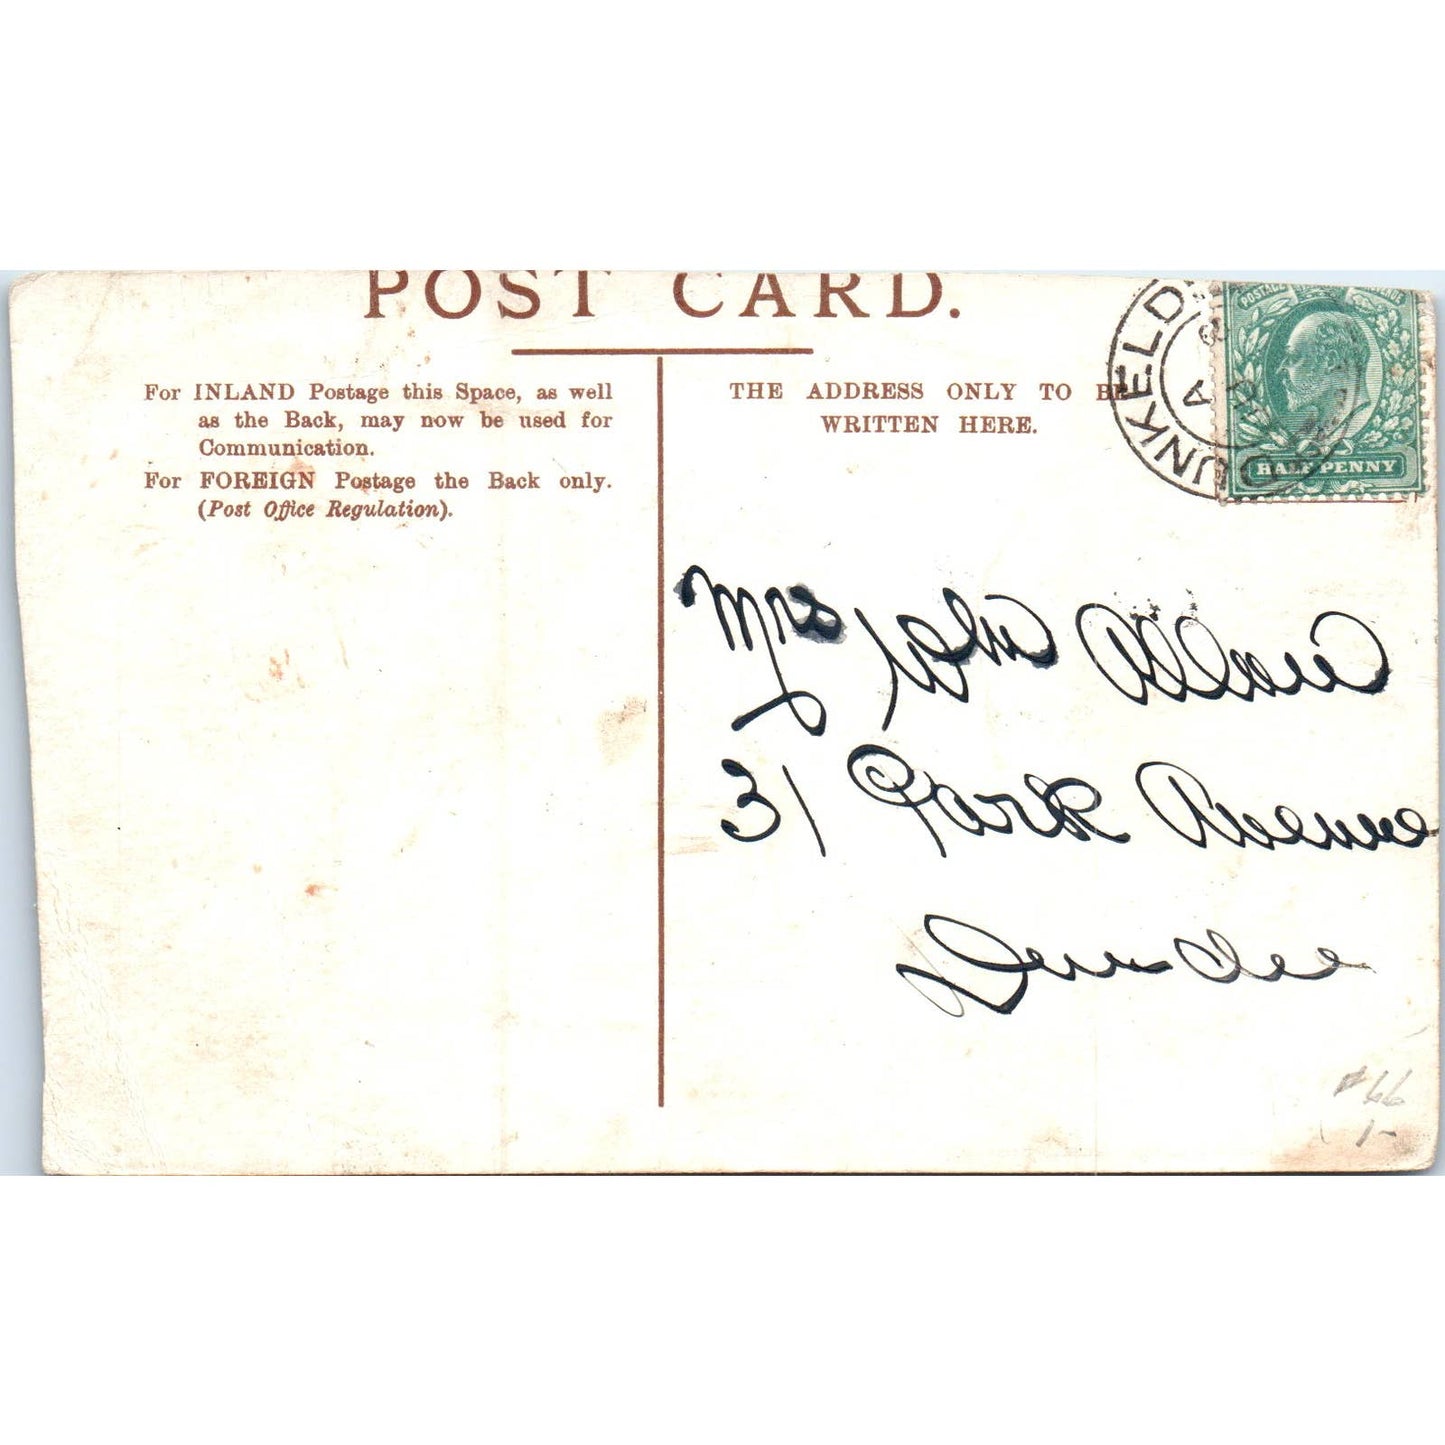 POST CARD.
For INLAND Postage this Space, as well
as the Back, may now be used for
Communication.
For FOREIGN Postage the Back only.
(Post Office Regulation).
THE ADDRESS ONLY TO BE
WRITTEN HERE.
DUNKELD
A
POSTAGE
HALFPENNY
Mrs John
31 Park Avenue
Dundee
#66
1-